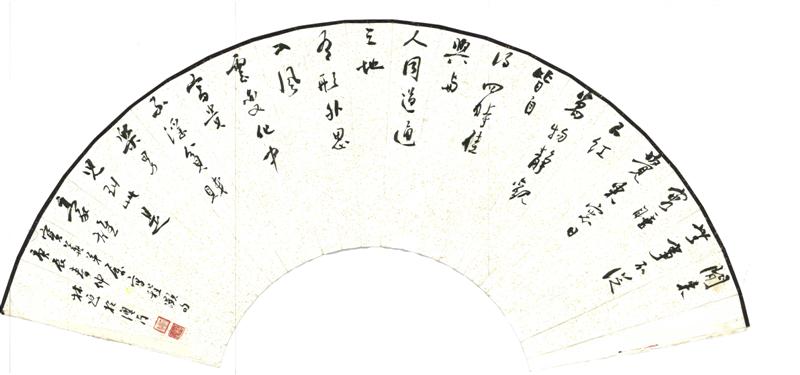 閒来
无事不從
容睡
覺東窗日
已红
萬物靜觀
皆自
得四時佳
興与
人同道通
天地
有形外思
入風
雲变化中
富貴
不淫貧賤
樂男
兒到此是
豪雄
庚辰春仲